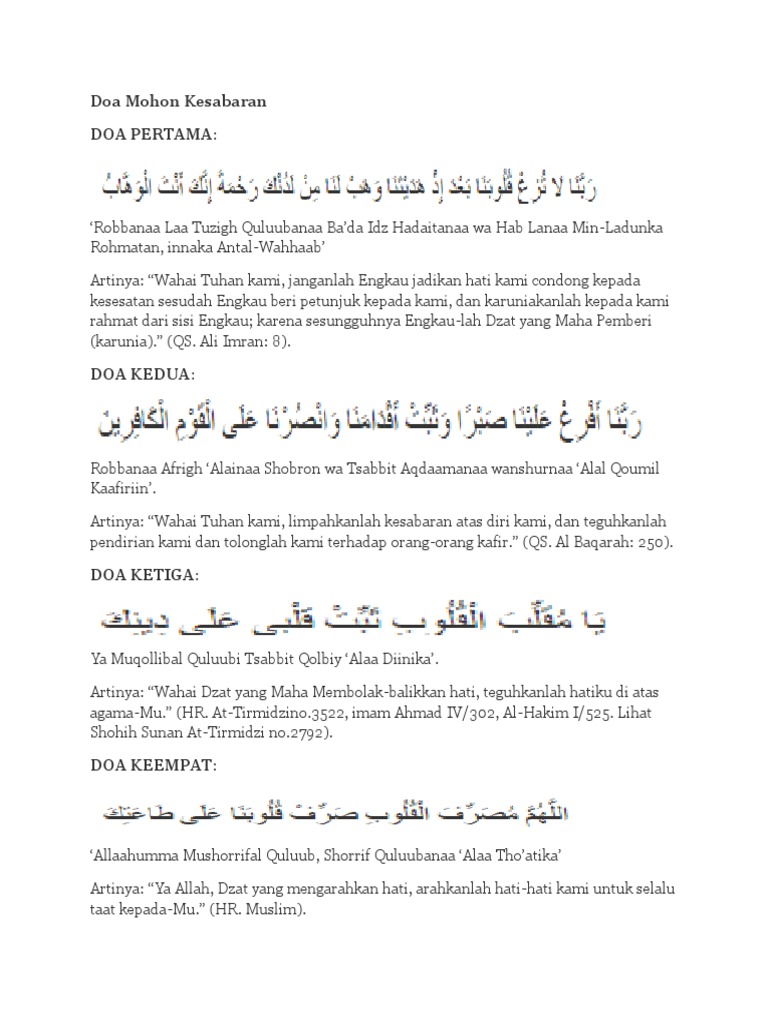 Doa Mohon Kesabaran
DOA PERTAMA:
رَبَّنَا لَا تُزِغْ قُلُوبَنَا بَعْدَ إِذْ هَدَيْتَنَا وَهَبْ لَنَا مِنْ لَدُنْكَ رَحْمَةً إِنَّكَ أَنْتَ الْوَهَّابُ
‘Robbanaa Laa Tuzigh Quluubanaa Ba’da Idz Hadaitanaa wa Hab Lanaa Min-Ladunka
Rohmatan, innaka Antal-Wahhaab’
Artinya: “Wahai Tuhan kami, janganlah Engkau jadikan hati kami condong kepada
kesesatan sesudah Engkau beri petunjuk kepada kami, dan karuniakanlah kepada kami
rahmat dari sisi Engkau; karena sesungguhnya Engkau-lah Dzat yang Maha Pemberi
(karunia).” (QS. Ali Imran: 8).
DOA KEDUA:
رَبَّنَا أَفْرِغْ عَلَيْنَا صَبْرًا وَثَبِّتْ أَقْدَامَنَا وَانْصُرْنَا عَلَى الْقَوْمِ الْكَافِرِينَ
Robbanaa Afrigh ‘Alainaa Shobron wa Tsabbit Aqdaamanaa wanshurnaa ‘Alal Qoumil
Kaafiriin’.
Artinya: “Wahai Tuhan kami, limpahkanlah kesabaran atas diri kami, dan teguhkanlah
pendirian kami dan tolonglah kami terhadap orang-orang kafir.” (QS. Al Baqarah: 250).
DOA KETIGA:
يَا مُقَلِّبَ الْقُلُوبِ ثَبِّتْ قَلْبِى عَلَى دِينِكَ
Ya Muqollibal Quluubi Tsabbit Qolbiy ‘Alaa Diinika’.
Artinya: “Wahai Dzat yang Maha Membolak-balikkan hati, teguhkanlah hatiku di atas
agama-Mu.” (HR. At-Tirmidzino.3522, imam Ahmad IV/302, Al-Hakim I/525. Lihat
Shohih Sunan At-Tirmidzi no.2792).
DOA KEEMPAT:
اللَّهُمَّ مُصَرِّفَ الْقُلُوبِ صَرِّفْ قُلُوبَنَا عَلَى طَاعَتِكَ
‘Allaahumma Mushorrifal Quluub, Shorrif Quluubanaa ‘Alaa Tho’atika’
Artinya: “Ya Allah, Dzat yang mengarahkan hati, arahkanlah hati-hati kami untuk selalu
taat kepada-Mu.” (HR. Muslim).